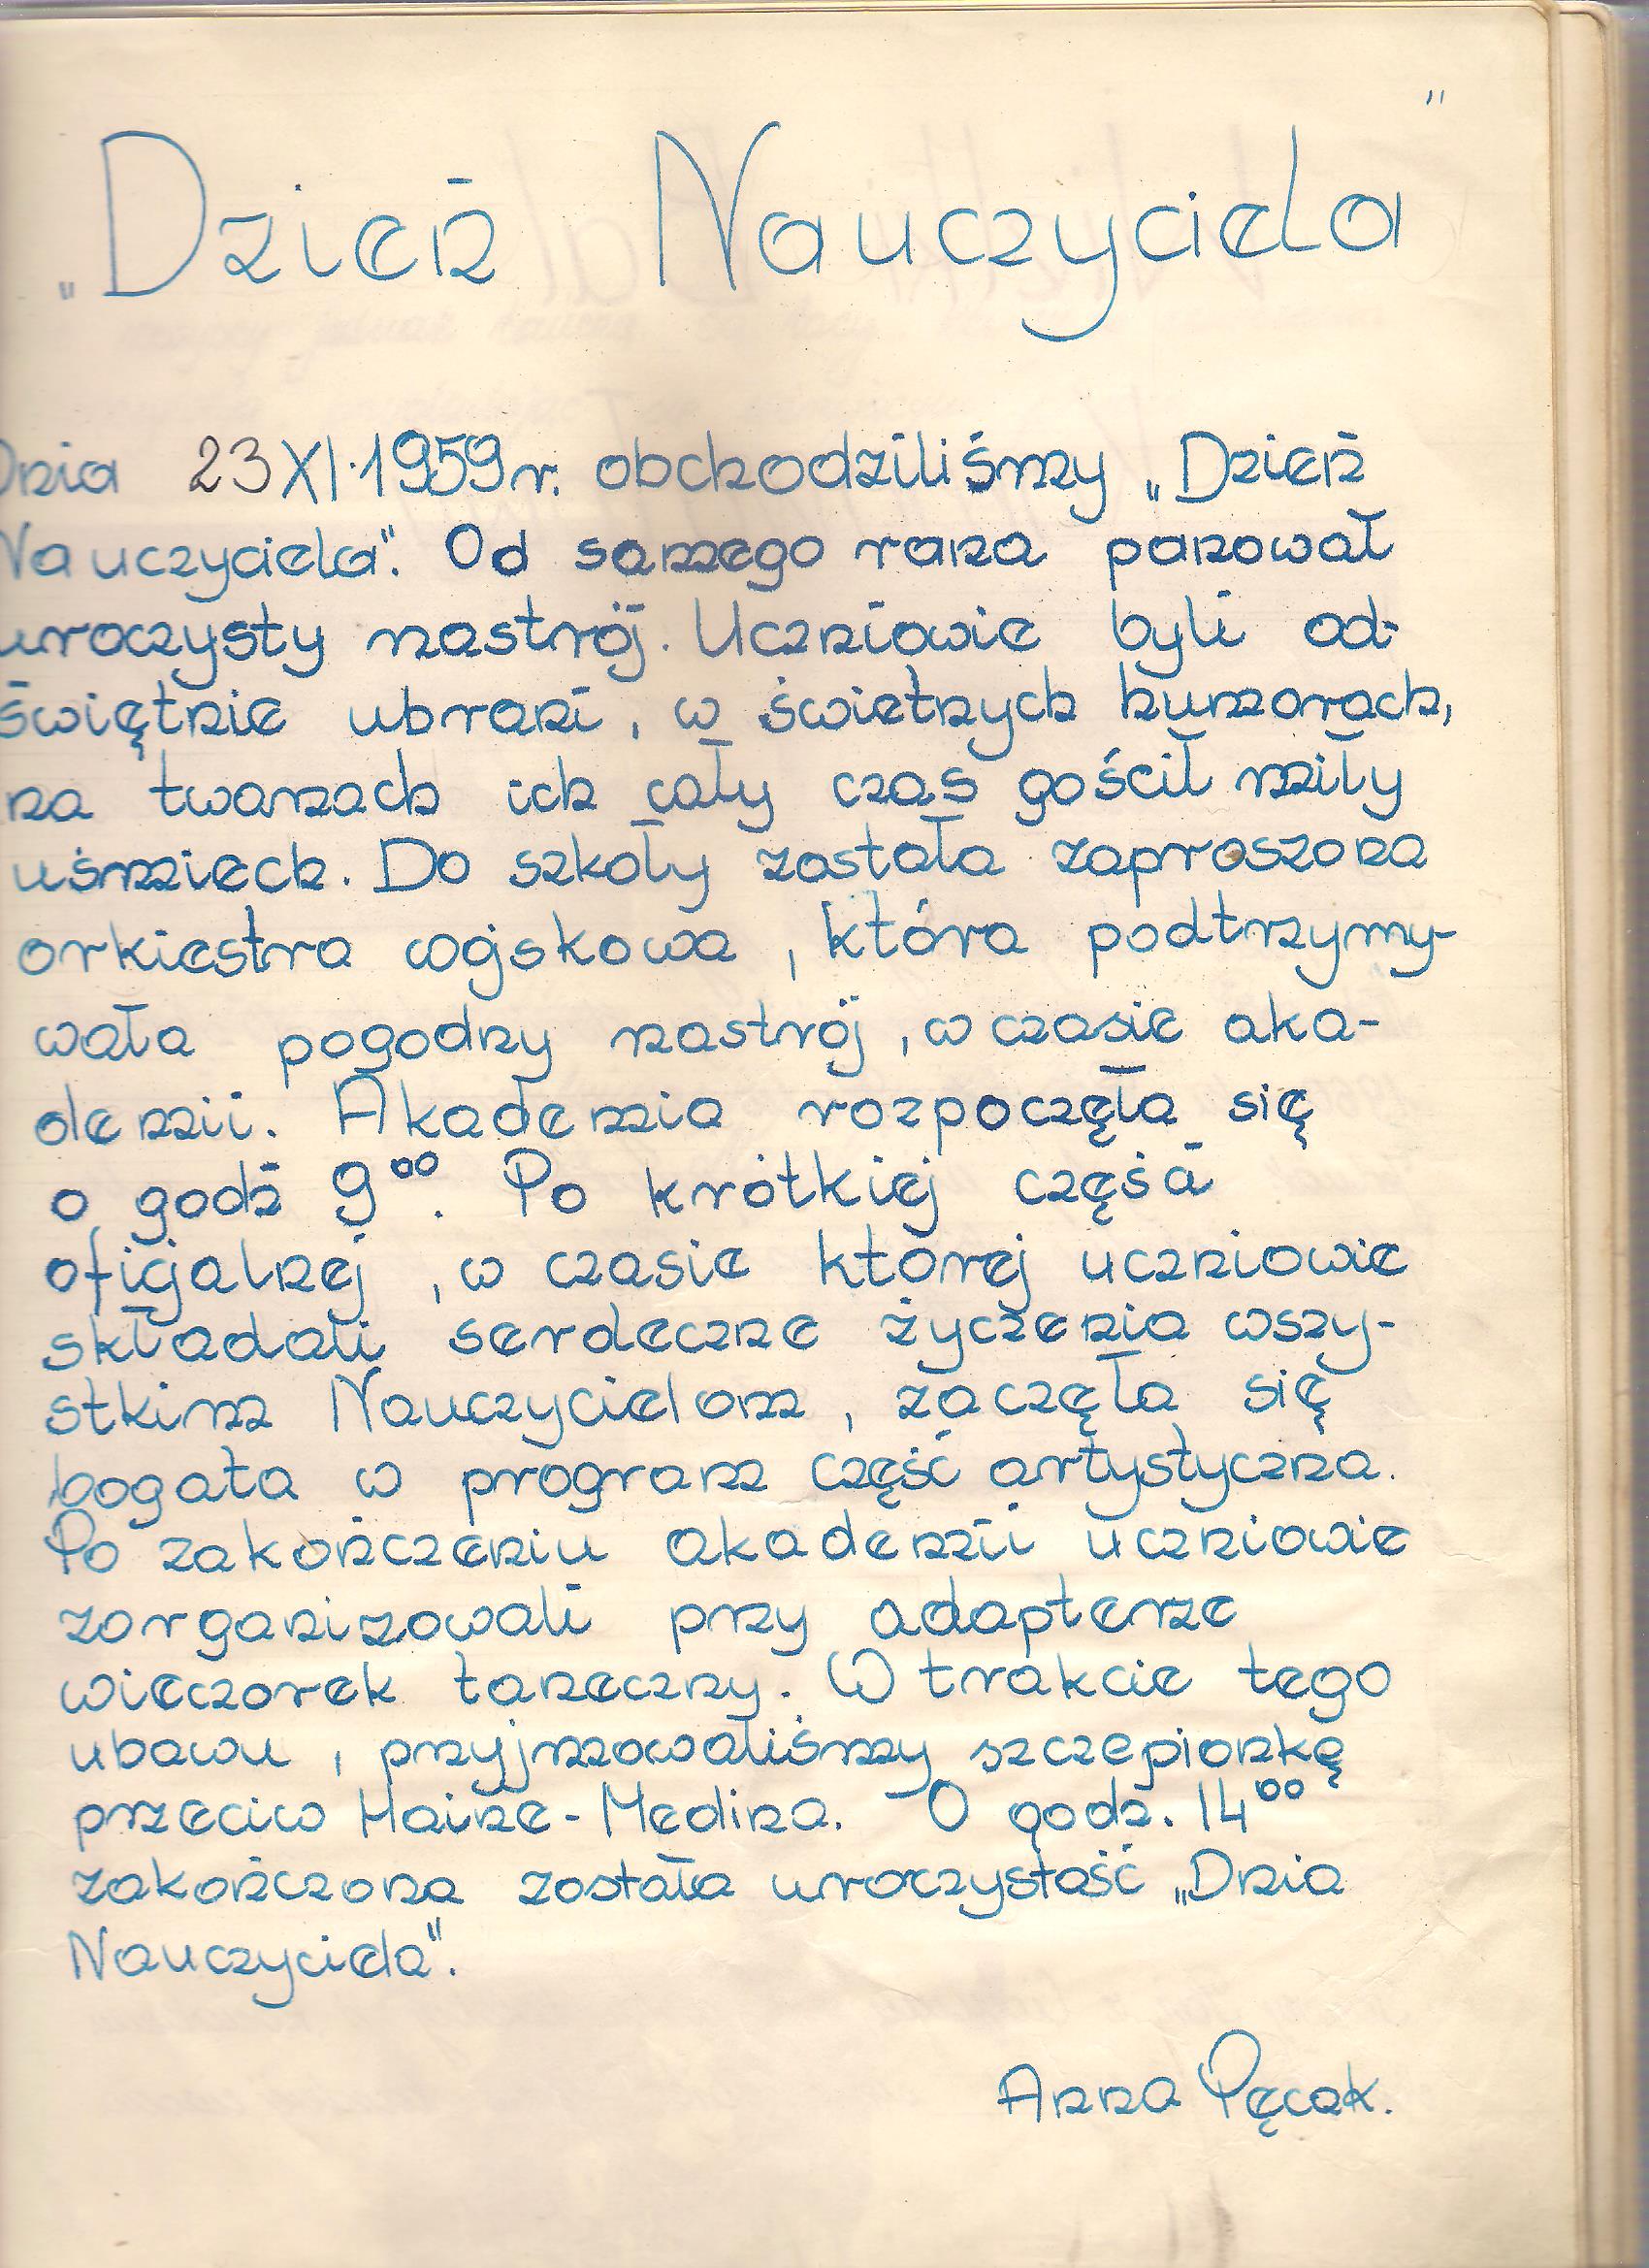 „Dzień Nauczyciela"
Dnia 23 XI.1959 r. obchodziliśmy „Dzień
Nauczyciela". Od samego rana panował
uroczysty nastrój. Uczniowie byli od-
świętnie ubrani, w świetnych humorach,
na twarzach ich cały czas gościł miły
uśmiech. Do szkoły została zaproszona
orkiestra wojskowa, która podtrzymy-
wała pogodny nastrój, w czasie aka-
demii. Akademia rozpoczęła się
o godz 9⁰⁰. Po krótkiej części
oficjalnej, w czasie której uczniowie
składali serdeczne życzenia wszy-
stkim Nauczycielom, zaczęła się
bogata w program część artystyczna.
Po zakończeniu akademii uczniowie
zorganizowali przy adapterze
wieczorek taneczny. W trakcie tego
ubawu, przyjmowaliśmy szczepionkę
przeciw Haine-Medina. O godz. 14⁰⁰
zakończona została uroczystość „Dnia
Nauczyciela".
Anna Pęcak.